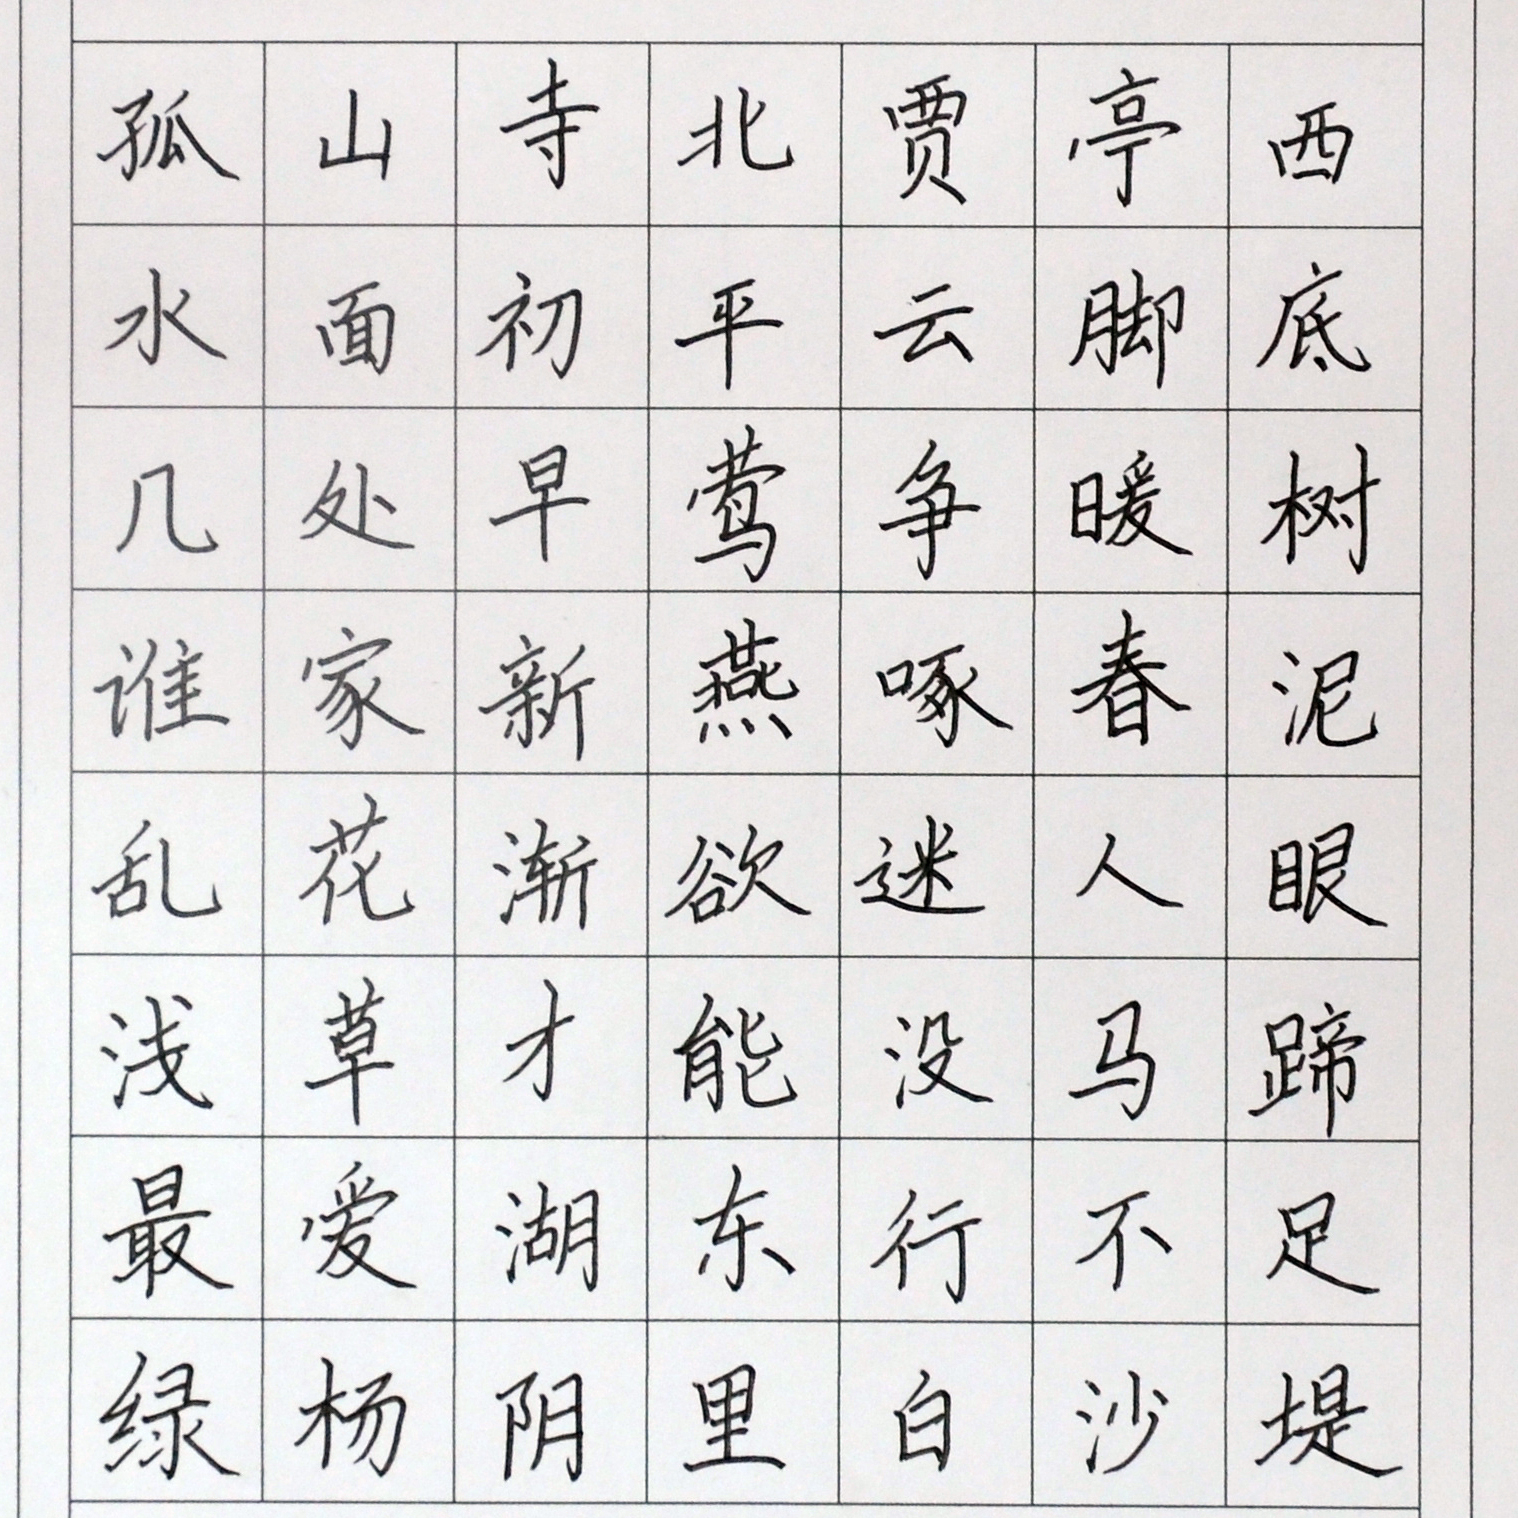 孤山寺北贾亭西
水面初平云脚底
几处早莺争暖树
谁家新燕啄春泥
乱花渐欲迷人眼
浅草才能没马蹄
最爱湖东行不足
绿杨阴里白沙堤